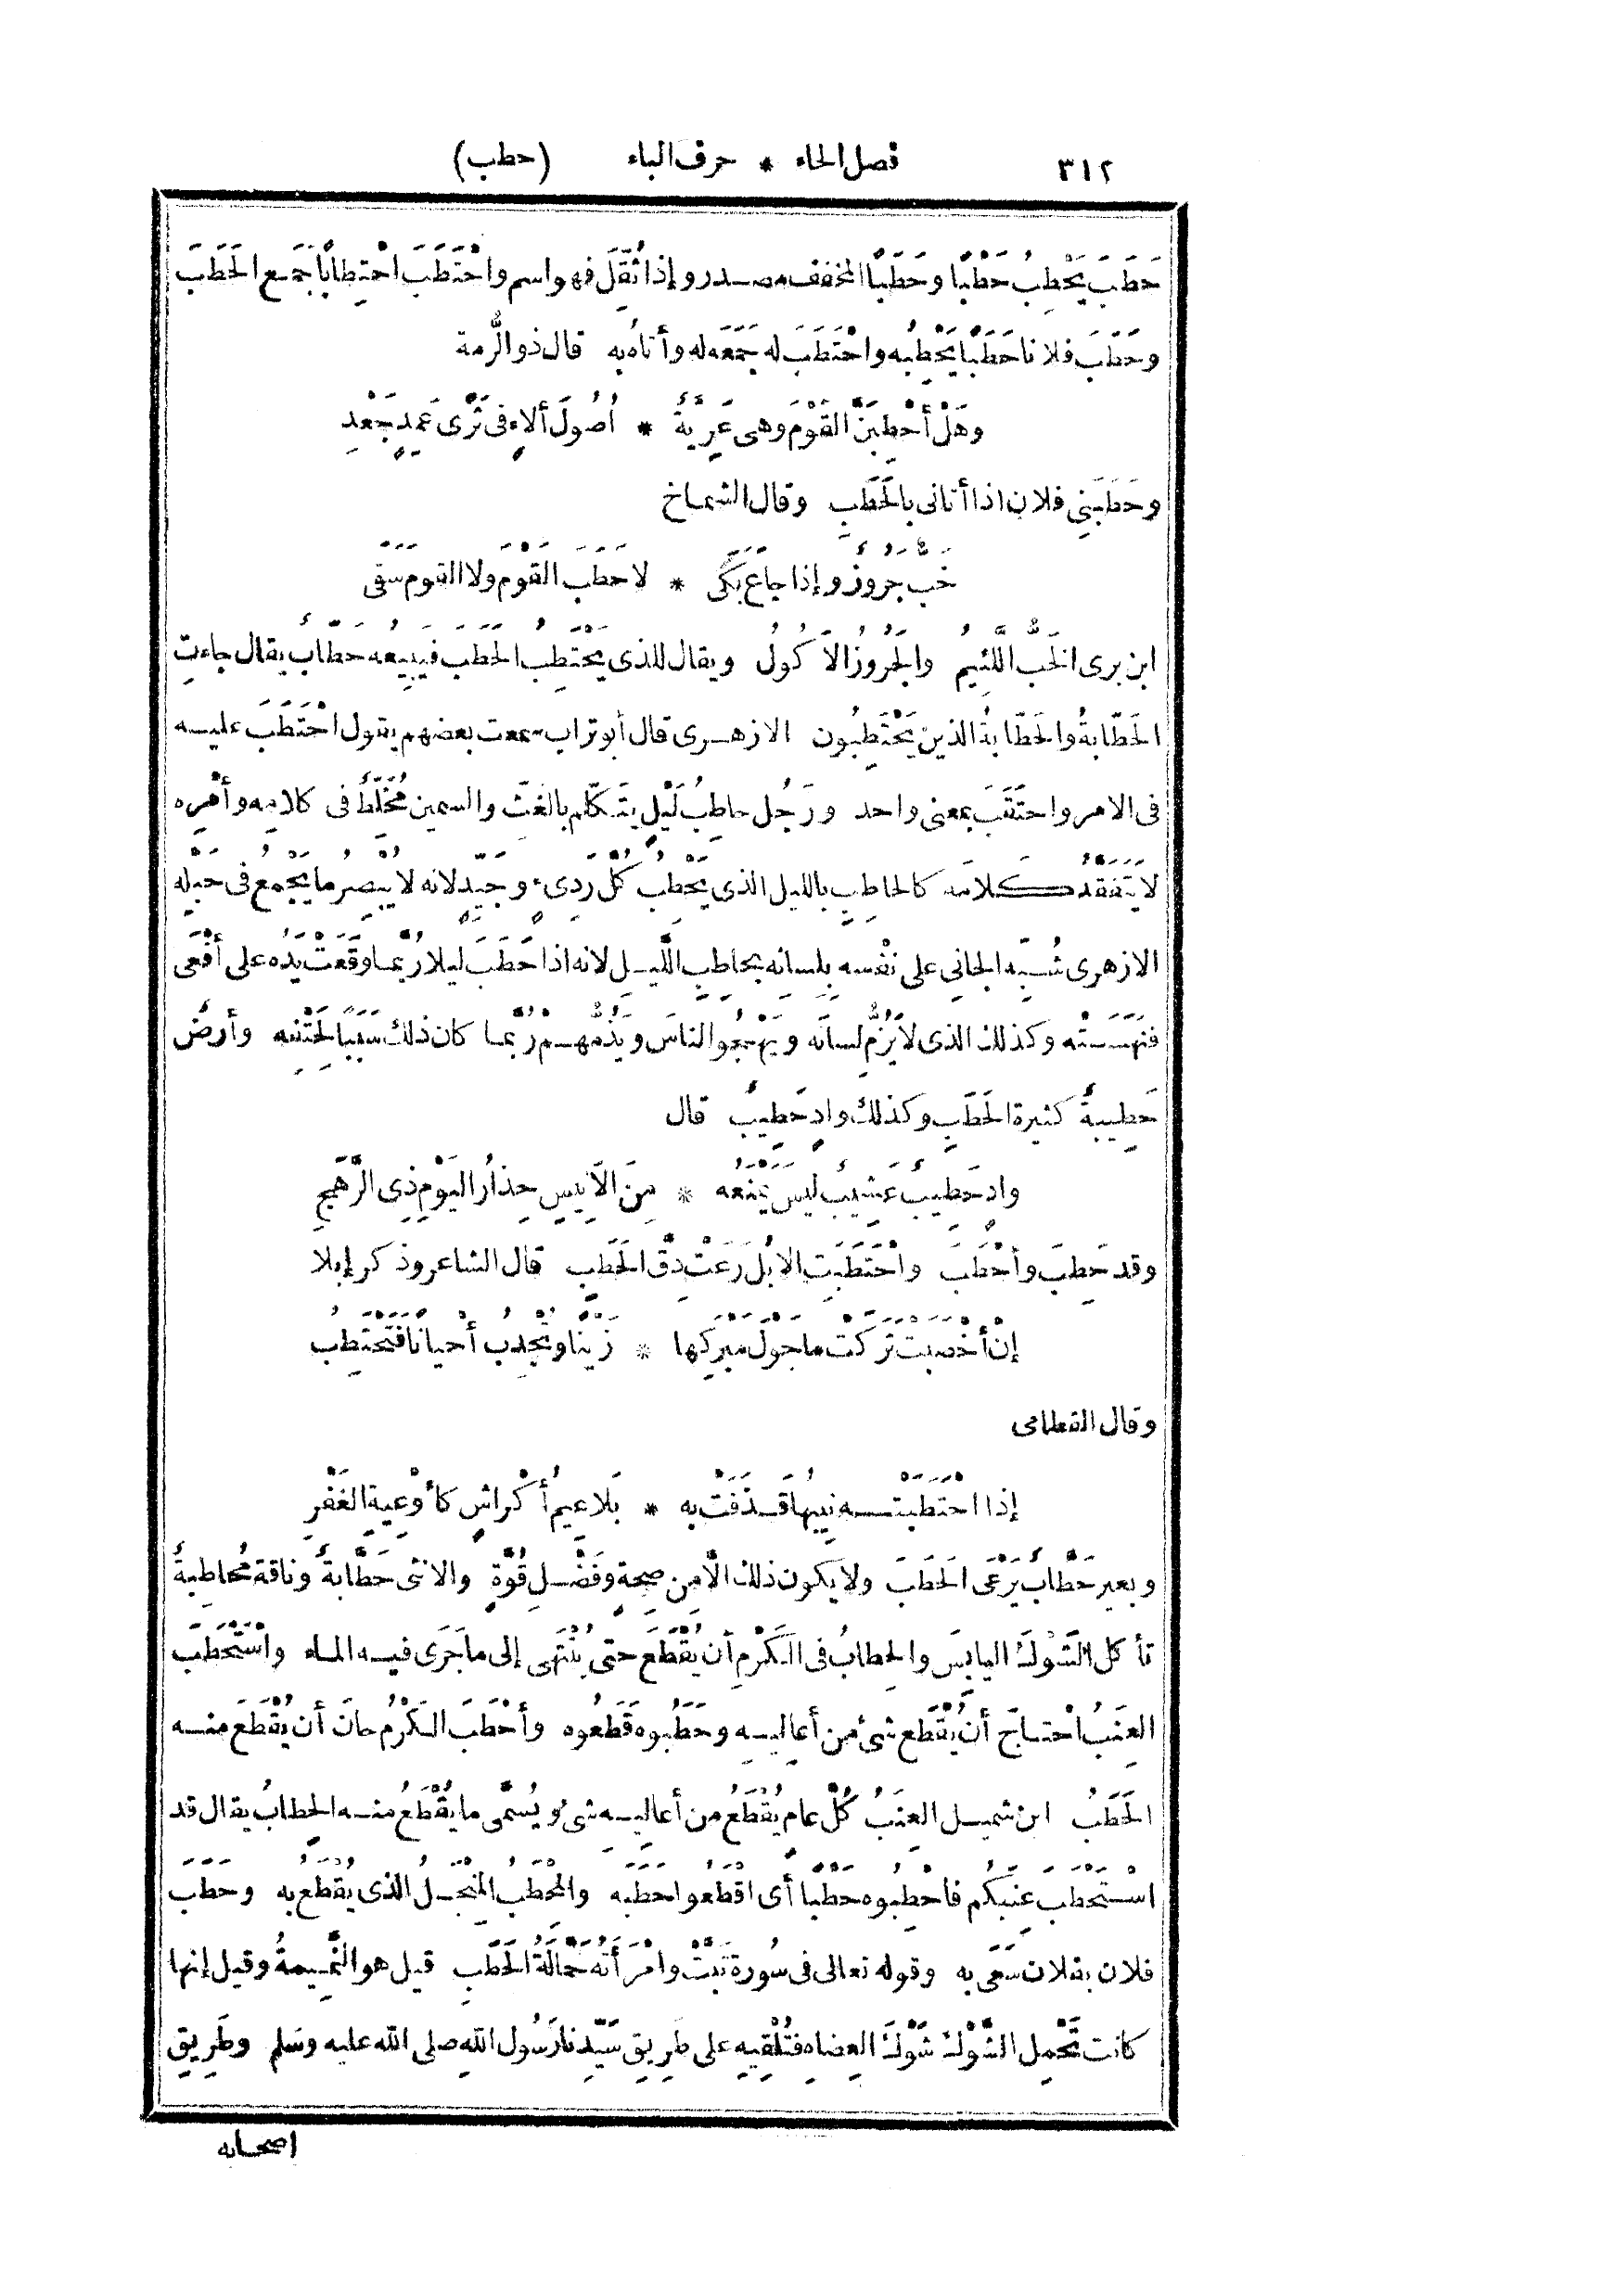 ٣١٢ فصل الحاء * حرف الباء (حطب)
حَطَبَ يَحْطِبُ حَطْبًا وحَطَبًا المخفف مصدر وإذا ثُقِّلَ فهو اسم واحْتَطَبَ احْتِطابًا جَمَع الحَطَبَ
وحَطَبَ فلانا حَطَبًا يَحْطِبُه واحْتَطَبَ له جَمَعَه له وأتاه به قال ذو الرُّمة
وهَلْ أَحْطِبَنَّ القَوْمَ وهى عَرِيَّةٌ * أُصُولَ ألاءٍ فى ثَرًى عَمِدٍ جَعْدِ
وحَطَبَنِى فلان اذا أتانى بالحَطَبِ وقال الشماخ
خَبٌّ جَرُوزٌ وإذا جاعَ بَكَى * لا حَطَبَ القَوْمَ ولا القومَ سَقَى
ابن برى الخَبُّ اللَّئِيمُ والجَرُوزُ الأَكُولُ ويقال للذى يَحْتَطِبُ الحَطَبَ فيَبِيعُه حَطَّابٌ يقال جاءتِ
الحَطّابةُ والحَطّابةُ الذين يَحْتَطِبُون الازهرى قال أبو تراب سمعت بعضهم يقول احْتَطَبَ عليه
فى الامر واحتَقَبَ بمعنى واحد ورَجُل حاطِبُ لَيْلٍ يتَكَلَّم بالغَثّ والسمين مُخَلِّطٌ فى كلامِه وأَمْرِه
لا يَتفَقَّدُ كلامَه كالحاطِبِ بالليل الذى يَحْطِبُ كُلَّ رَدِىءٍ وجَيِّدٍ لانه لا يُبْصِرُ ما يَجْمَعُ فى حبْلِه
الازهرى شُبِّه الجانِى على نفْسه بِلِسانِه بحاطِبِ اللَّيلِ لانه اذا حَطَبَ ليلا رُبَّما وقَعَتْ يَدُه على أَفْعَى
فنَهَشَتْه وكذلك الذى لا يَزُمُّ لسانَه ويَهْجُو الناسَ ويَذُمُّهم رُبَّما كان ذلك سَبَبًا لحَتْفِه وأرضٌ
حَطِيبةٌ كثيرة الحَطَبِ وكذلك وادٍ حَطِيبٌ قال
وادٍ حَطِيبٌ عَشِيبٌ ليس يَمْنَعُه * مِنَ الأَنِيسِ حِذارُ اليَوْمِ ذِى الرَّهَجِ
وقد حَطِبَ وأَحْطَبَ واحْتَطَبَتِ الابِلُ رَعَتْ دِقَّ الحَطَبِ قال الشاعر وذكر إبلا
إنْ أَخْصَبَتْ تَرَكَتْ ما حَوْلَ مَبْرَكِها * زَيْنًا وتُجْدِبُ أحْيانًا فتَحْتَطِبُ
وقال القطامى
إذا احْتَطَبَتْه نِيبُها قَذَفَتْ به * بَلاعِيمُ أَكْراشٍ كأَوْعِيةِ الغَفْرِ
وبعير حَطَّابٌ يَرْعَى الحَطَبَ ولا يكون ذلك الّا مِن صِحّةٍ وفَضْلِ قُوّةٍ والانثى حَطَّابةٌ وناقة مُحاطِبةٌ
تأكل الشَّوْكَ اليابِسَ والحِطابُ فى الكَرْمِ أن يُقْطَعَ حتى يُنْتَهَى إلى ما جَرَى فيه الماء واسْتَحْطَبَ
العِنَبُ احْتاجَ أن يُقْطَع شئ من أعالِيهِ وحَطَبُوه قَطَعُوه وأَحْطَبَ الكَرْمُ حانَ أن يُقْطَعَ منه
الحَطَبُ ابن شميل العنَبُ كُلَّ عامٍ يُقْطَعُ من أعالِيه شئ ويُسَمَّى ما يُقْطَعُ منه الحِطابُ يقال قد
اسْتَحْطَبَ عِنَبُكم فاحْطِبُوه حَطْبًا أى اقْطَعُوا حَطَبه والمِحْطَبُ المِنْجَلُ الذى يُقْطَعُ به وحَطَبَ
فلان بفلان سَعَى به وقوله تعالى فى سُورة تَبَّتْ وامْرَأَتُه حَمّالةُ الحَطَبِ قيل هو النَّمِيمةُ وقيل إنها
كانت تَحْمِل الشَّوْكَ شَوْكَ العِضاه فتُلْقِيهِ على طَرِيقِ سَيِّدنا رَسُول اللهِ صلى الله عليه وسَلم وطَرِيقِ
اصحابه